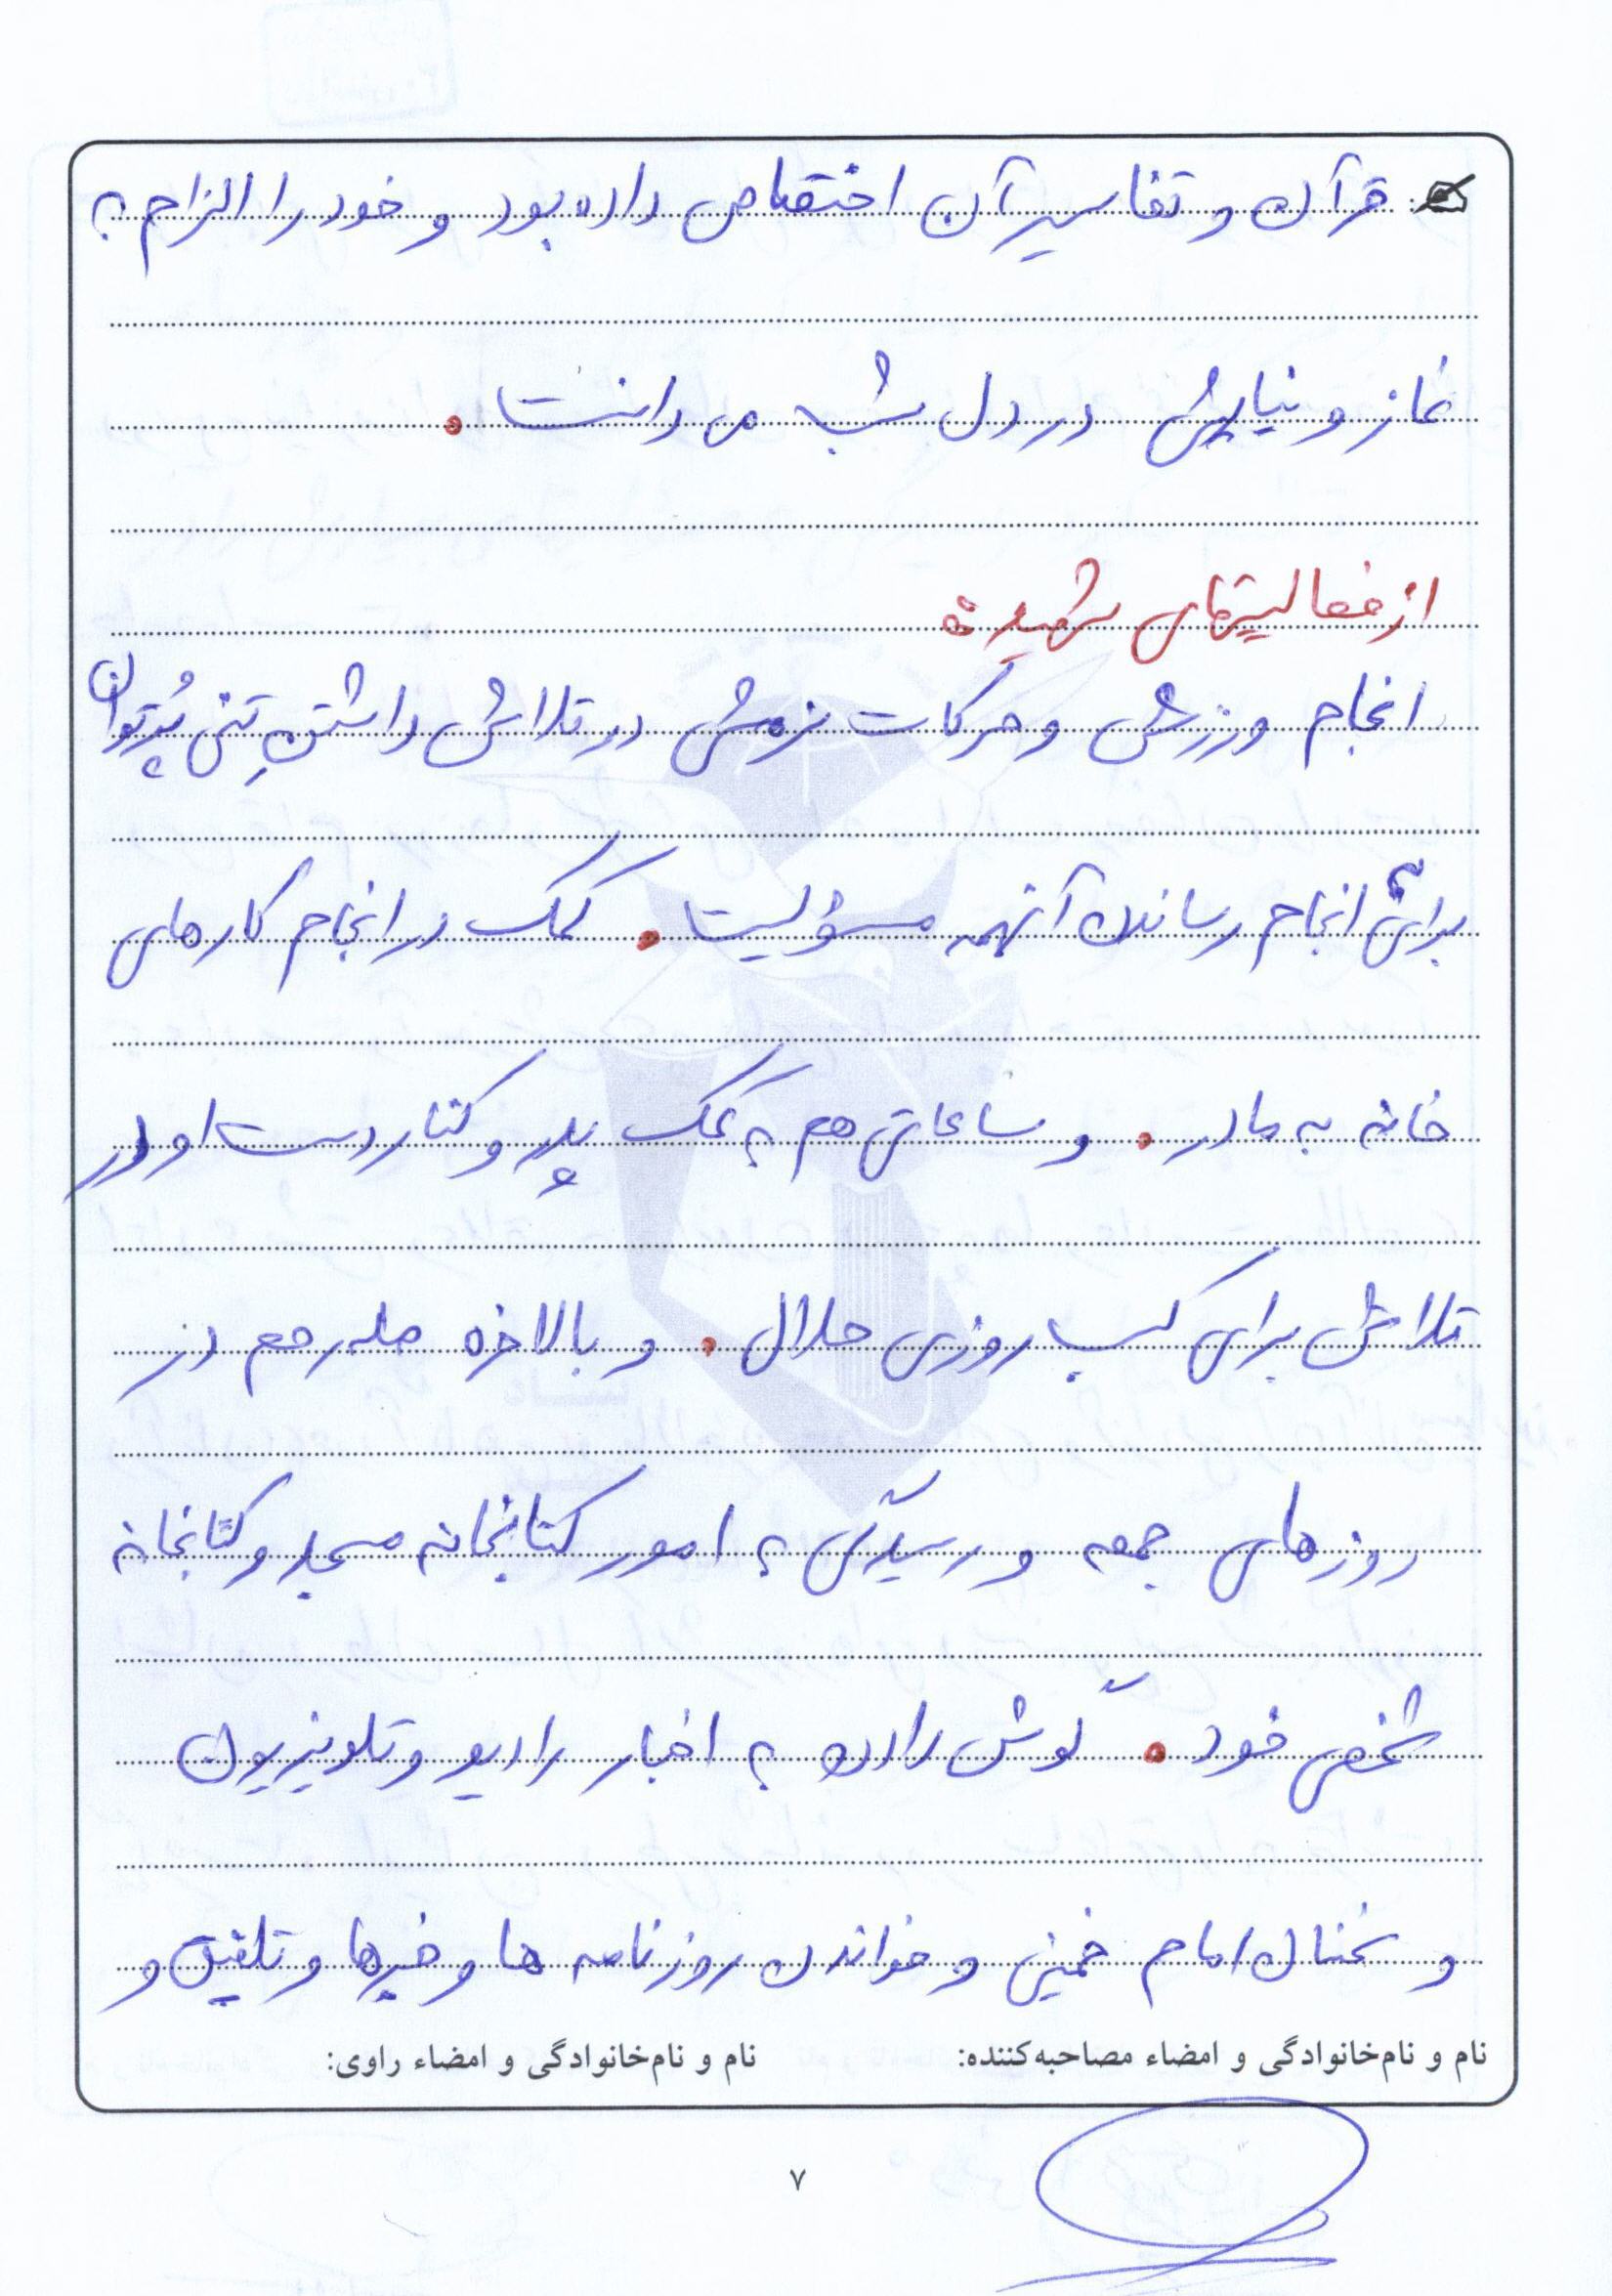 قرآن و تفاسیر آن اختصاص داده بود و خود را الزام به
نماز و نیایش در دل شب می دانست .
از فعالیتهای شهید :
انجام ورزش و حرکات نرمشی در تلاش داشتنِ تنی پُرتوان
برای به انجام رساندن آنهمه مسؤلیت . کمک در انجام کارهای
خانه به مادر . و ساعاتی هم به کمک پدر و کنار دست او در
تلاش برای کسب روزی حلال . و بالاخره صله رحم در
روزهای جمعه و رسیدگی به امور کتابخانه مسجد و کتابخانه
شخصی خود . گوش دادن به اخبار رادیو و تلویزیون
و سخنان امام خمینی و خواندن روزنامه ها و خبرها و تلفیق و
نام و نام‌خانوادگی و امضاء مصاحبه‌کننده: نام و نام‌خانوادگی و امضاء راوی:
۷